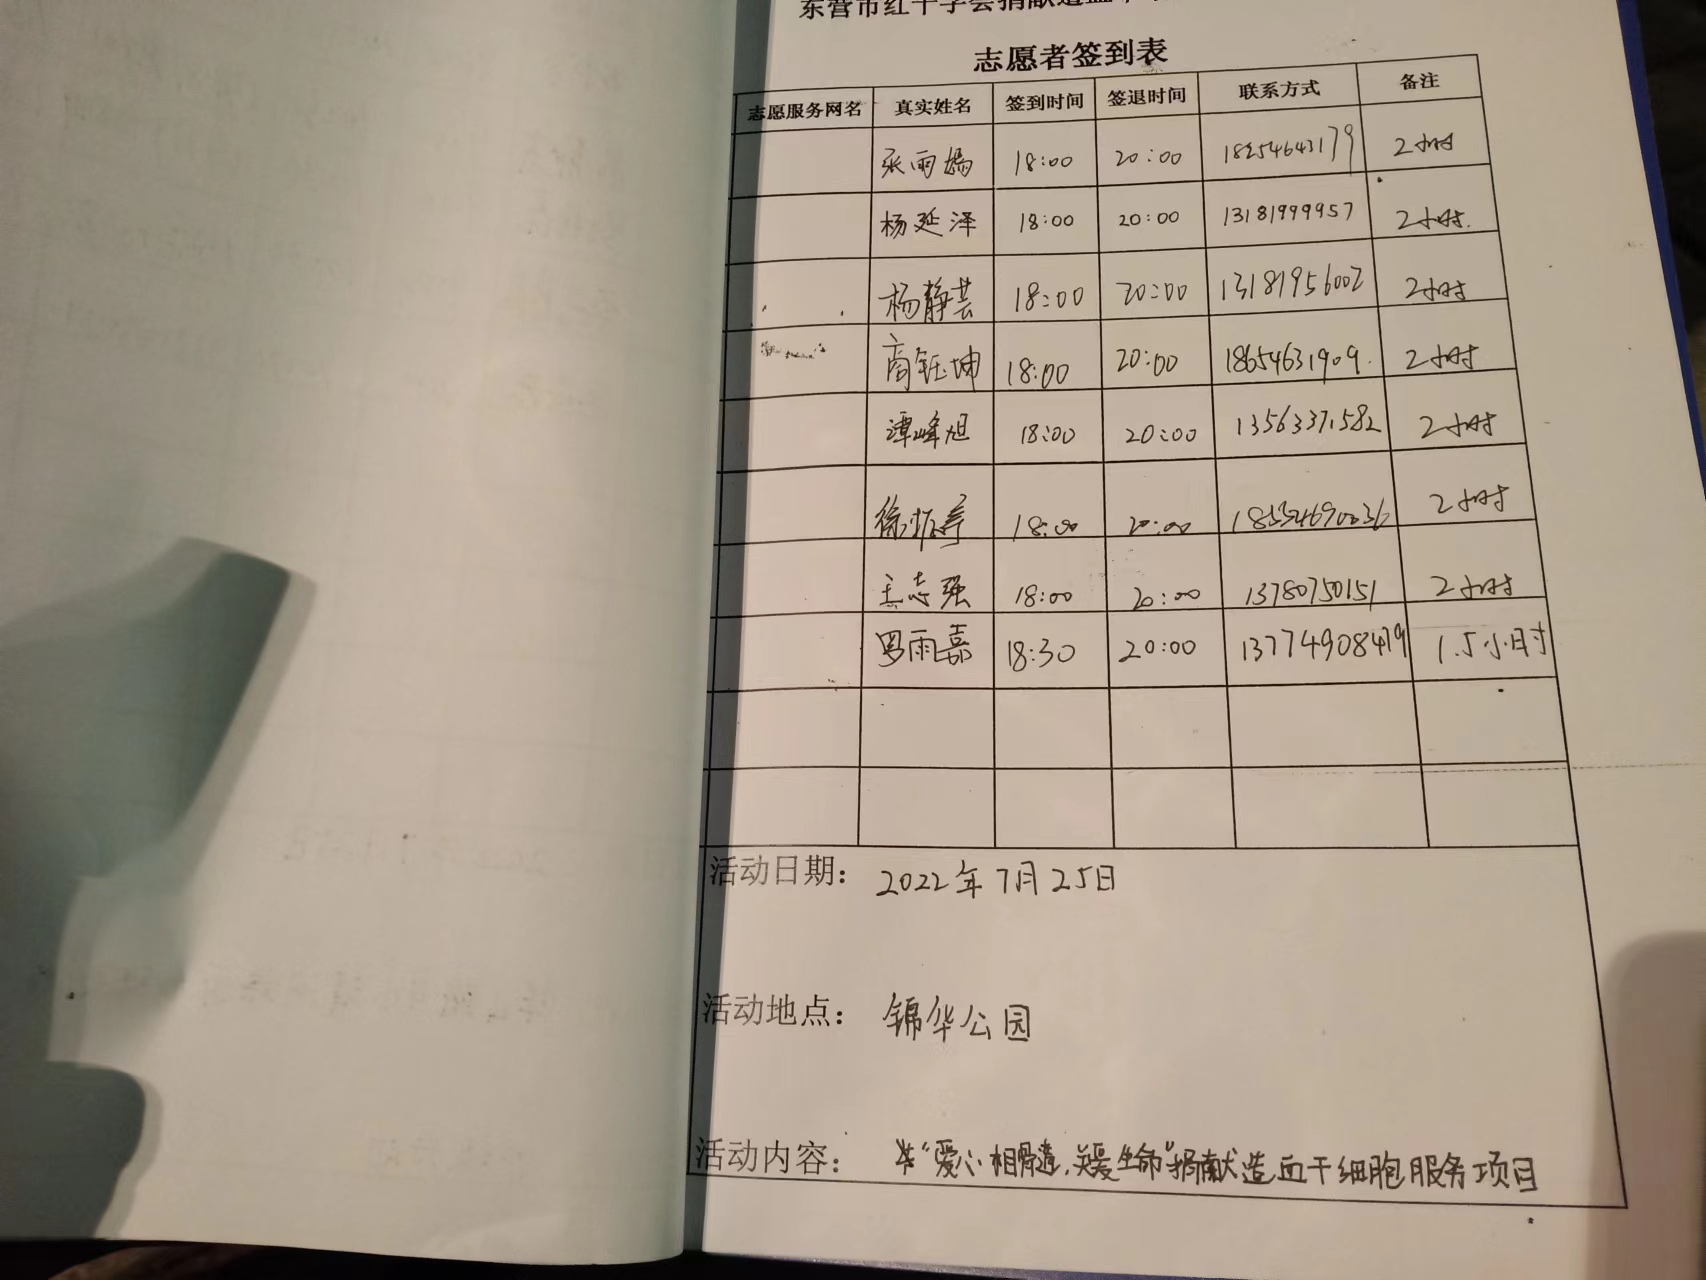 东营市红十字会捐献造血干
志愿者签到表
志愿服务网名 真实姓名 签到时间 签退时间 联系方式 备注
张雨嫣 18:00 20:00 18254643179 2小时
杨延泽 18:00 20:00 13181999957 2小时.
杨静芸 18:00 20:00 13181956002 2小时
高钰坤 18:00 20:00 18654631909. 2小时
谭峰旭 18:00 20:00 13563371582 2小时
徐振 18:00 20:00 18554690036 2小时
王志强 18:00 20:00 13780750151 2小时
罗雨嘉 18:30 20:00 13774908479 1.5小时
活动日期: 2022年7月25日
活动地点: 锦华公园
活动内容: "爱心相髓,关爱生命"捐献造血干细胞服务项目